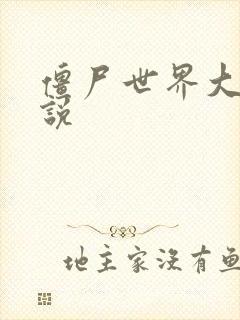 僵尸世界大
說
地主家沒有鱼